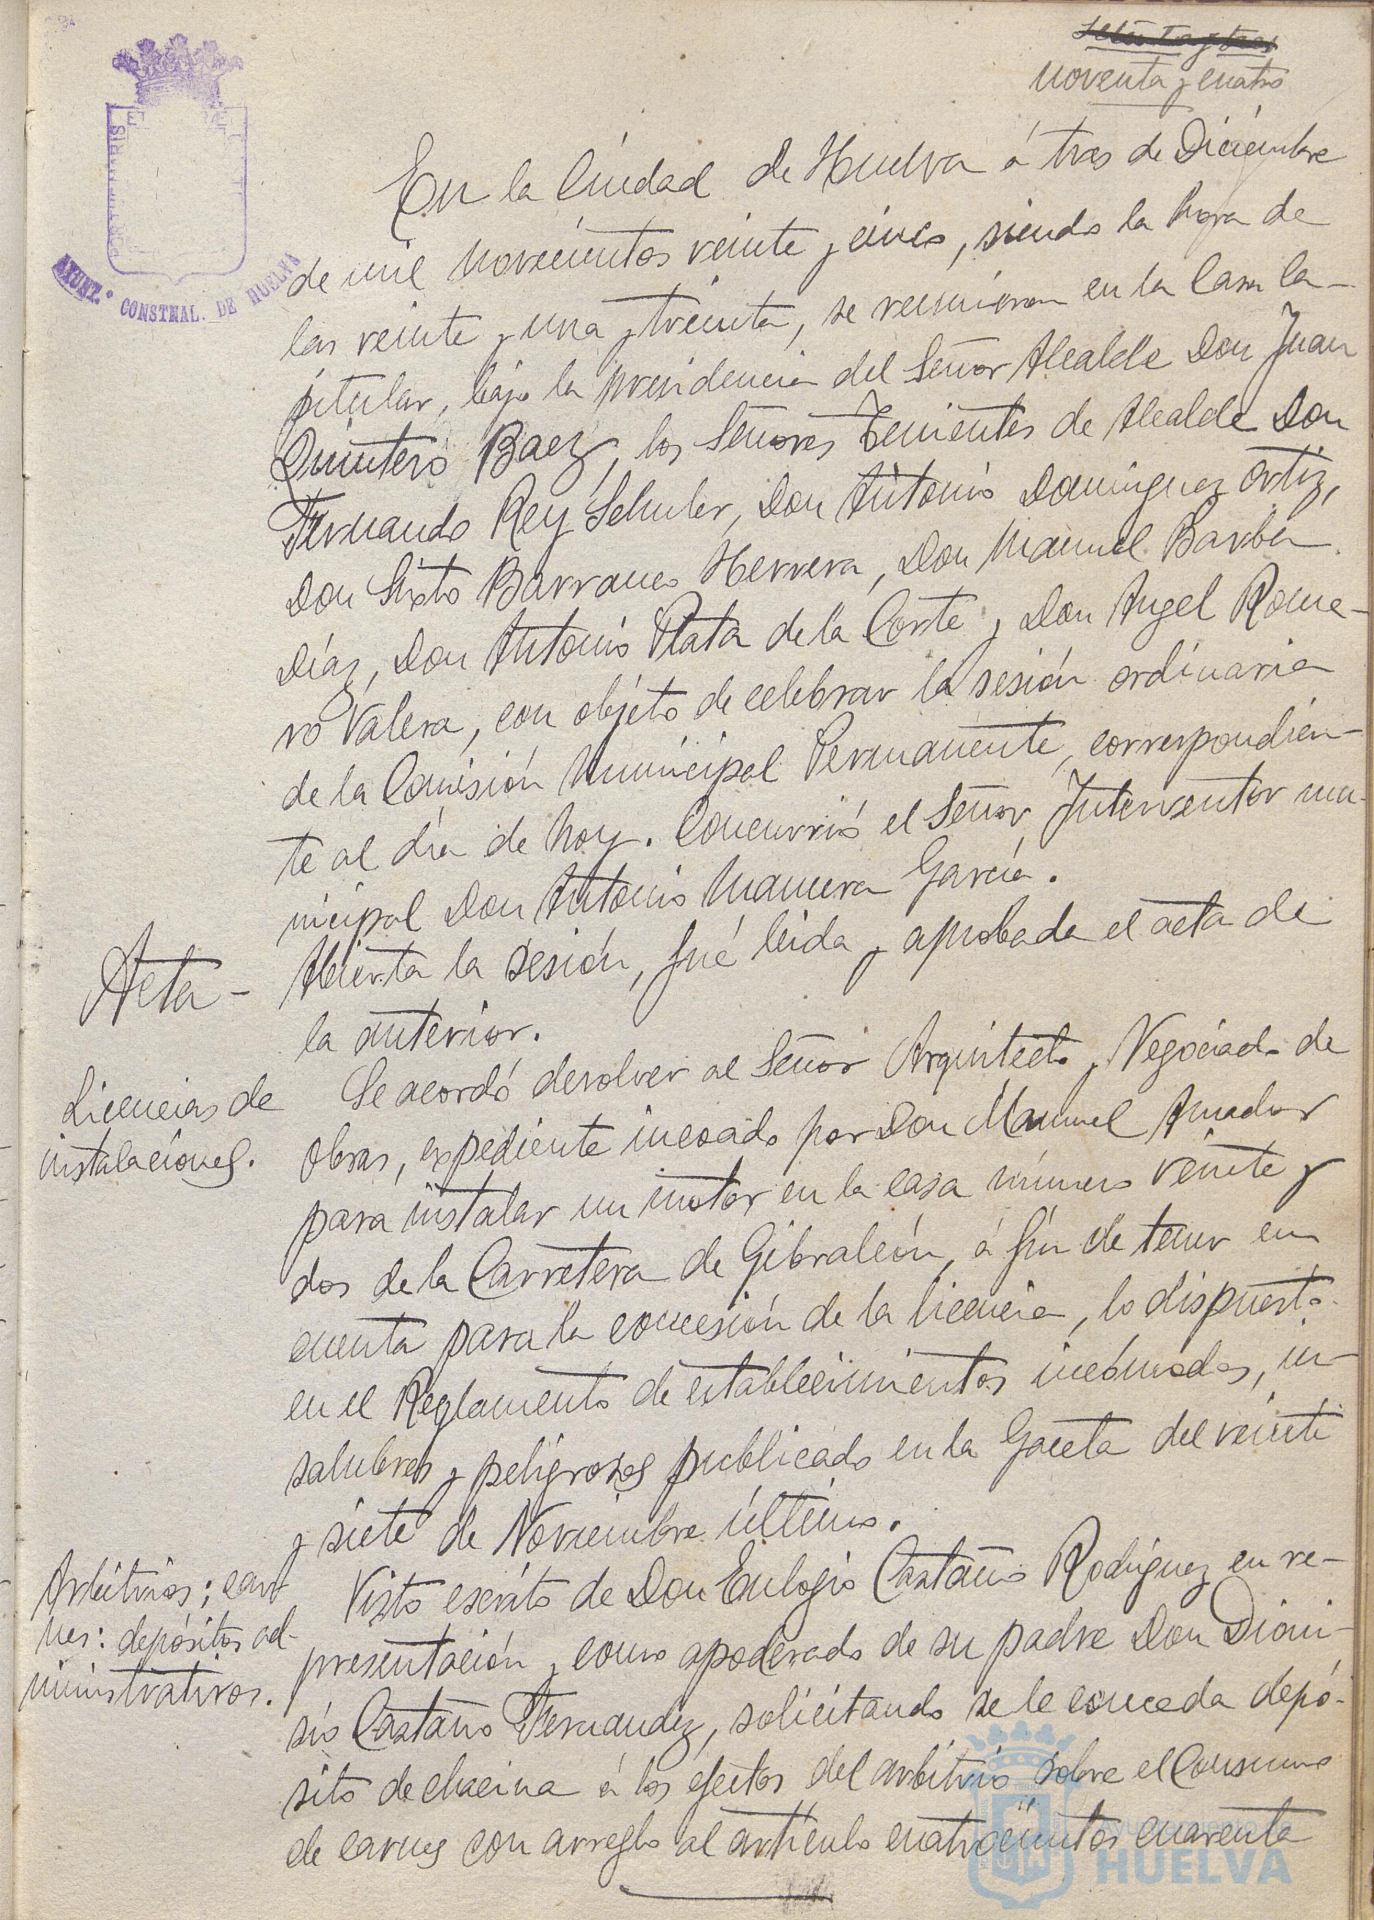 noventa y cuatro
AYUNT.º CONSTNAL. DE HUELVA
En la Ciudad de Huelva á tres de Diciembre
de mil novecientos veinte y cinco, siendo la hora de
las veinte y una y treinta, se reunieron en la Casa Ca-
pitular, bajo la presidencia del Señor Alcalde Don Juan
Quintero Baez, los Señores Tenientes de Alcalde Don
Fernando Rey Schuler, Don Antonio Dominguez Ortiz,
Don Sixto Barranco Herrera, Don Manuel Barba
Díaz, Don Antonio Plata de la Corte y Don Angel Rome-
ro Valera, con objeto de celebrar la sesión ordinaria
de la Comisión Municipal Permanente, correspondien-
te al día de hoy. Concurrió el Señor Interventor mu-
nicipal Don Antonio Mancera García.
Acta -
Abierta la sesión, fué leida y aprobada el acta de
la anterior.
Licencias de
instalaciones.
Se acordó devolver al Señor Arquitecto y Negociado de
obras, expediente incoado por Don Manuel Amador
para instalar un motor en la casa número veinte y
dos de la Carretera de Gibraleón, á fin de tener en
cuenta para la concesión de la licencia, lo dispuesto
en el Reglamento de establecimientos incómodos, in-
salubres y peligrosos publicado en la Gaceta del veinte
y siete de Noviembre último.
Arbitrios; car-
nes: depósitos ad-
ministrativos.
Visto escrito de Don Eulogio Castaño Rodriguez en re-
presentación y como apoderado de su padre Don Dioni-
sio Castaño Fernandez, solicitando se le conceda depó-
sito de chacina á los efectos del arbitrio sobre el Consumo
de carnes con arreglo al artículo cuatrocientos cuarenta
Ayuntamiento de
HUELVA